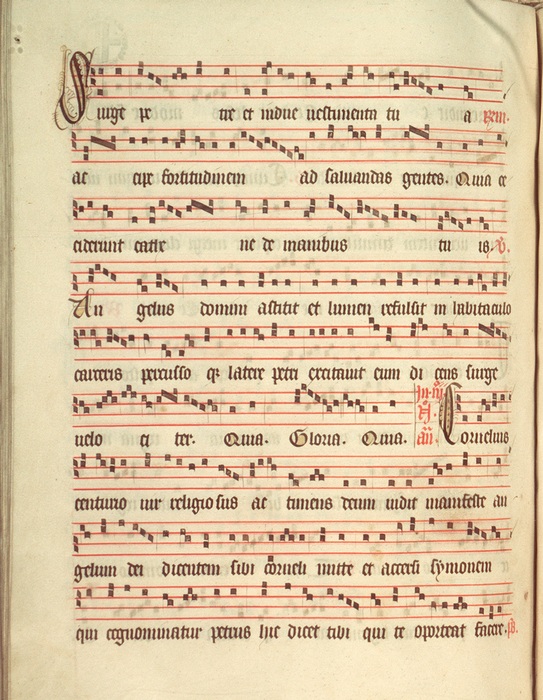 Surge pe tre et indue vestimenta tu a
ac cipe fortitudinem ad salvandas gentes. Quia ce
ciderunt cathe ne de manibus tu is. V.
An gelus domini astitit et lumen refulsit in habitaculo
carceris percusso qz latere petri excitavit eum di cens surge
velo ci ter. Quia. Gloria. Quia. an Cornelius
centurio vir religiosus ac timens deum vidit manifeste an
gelum dei dicentem sibi corneli mitte et accersi symonem
qui cognominatur petrus hic dicet tibi quid te oporteat facere. ps.